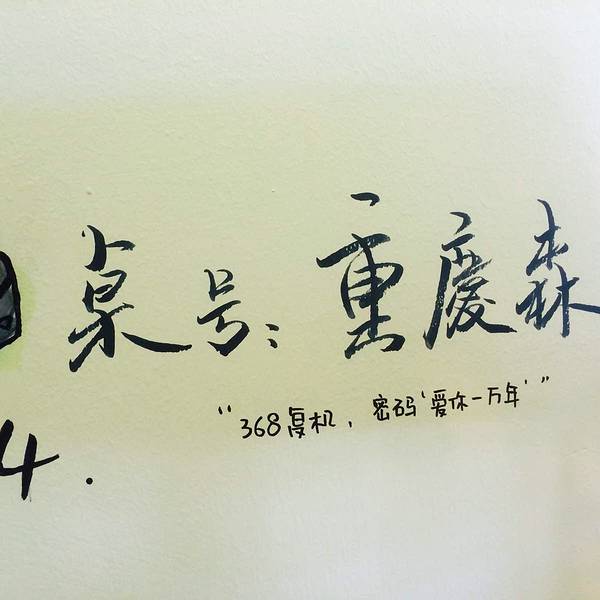 桌号:重慶森
“368复机,密码‘爱你一万年’”
4.